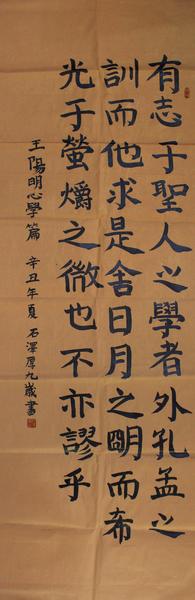 有志于聖人之學者外孔孟之
訓而他求是舍日月之明而希
光于螢爝之微也不亦謬乎
王陽明心學篇 辛丑年夏 石澤厚九歲書